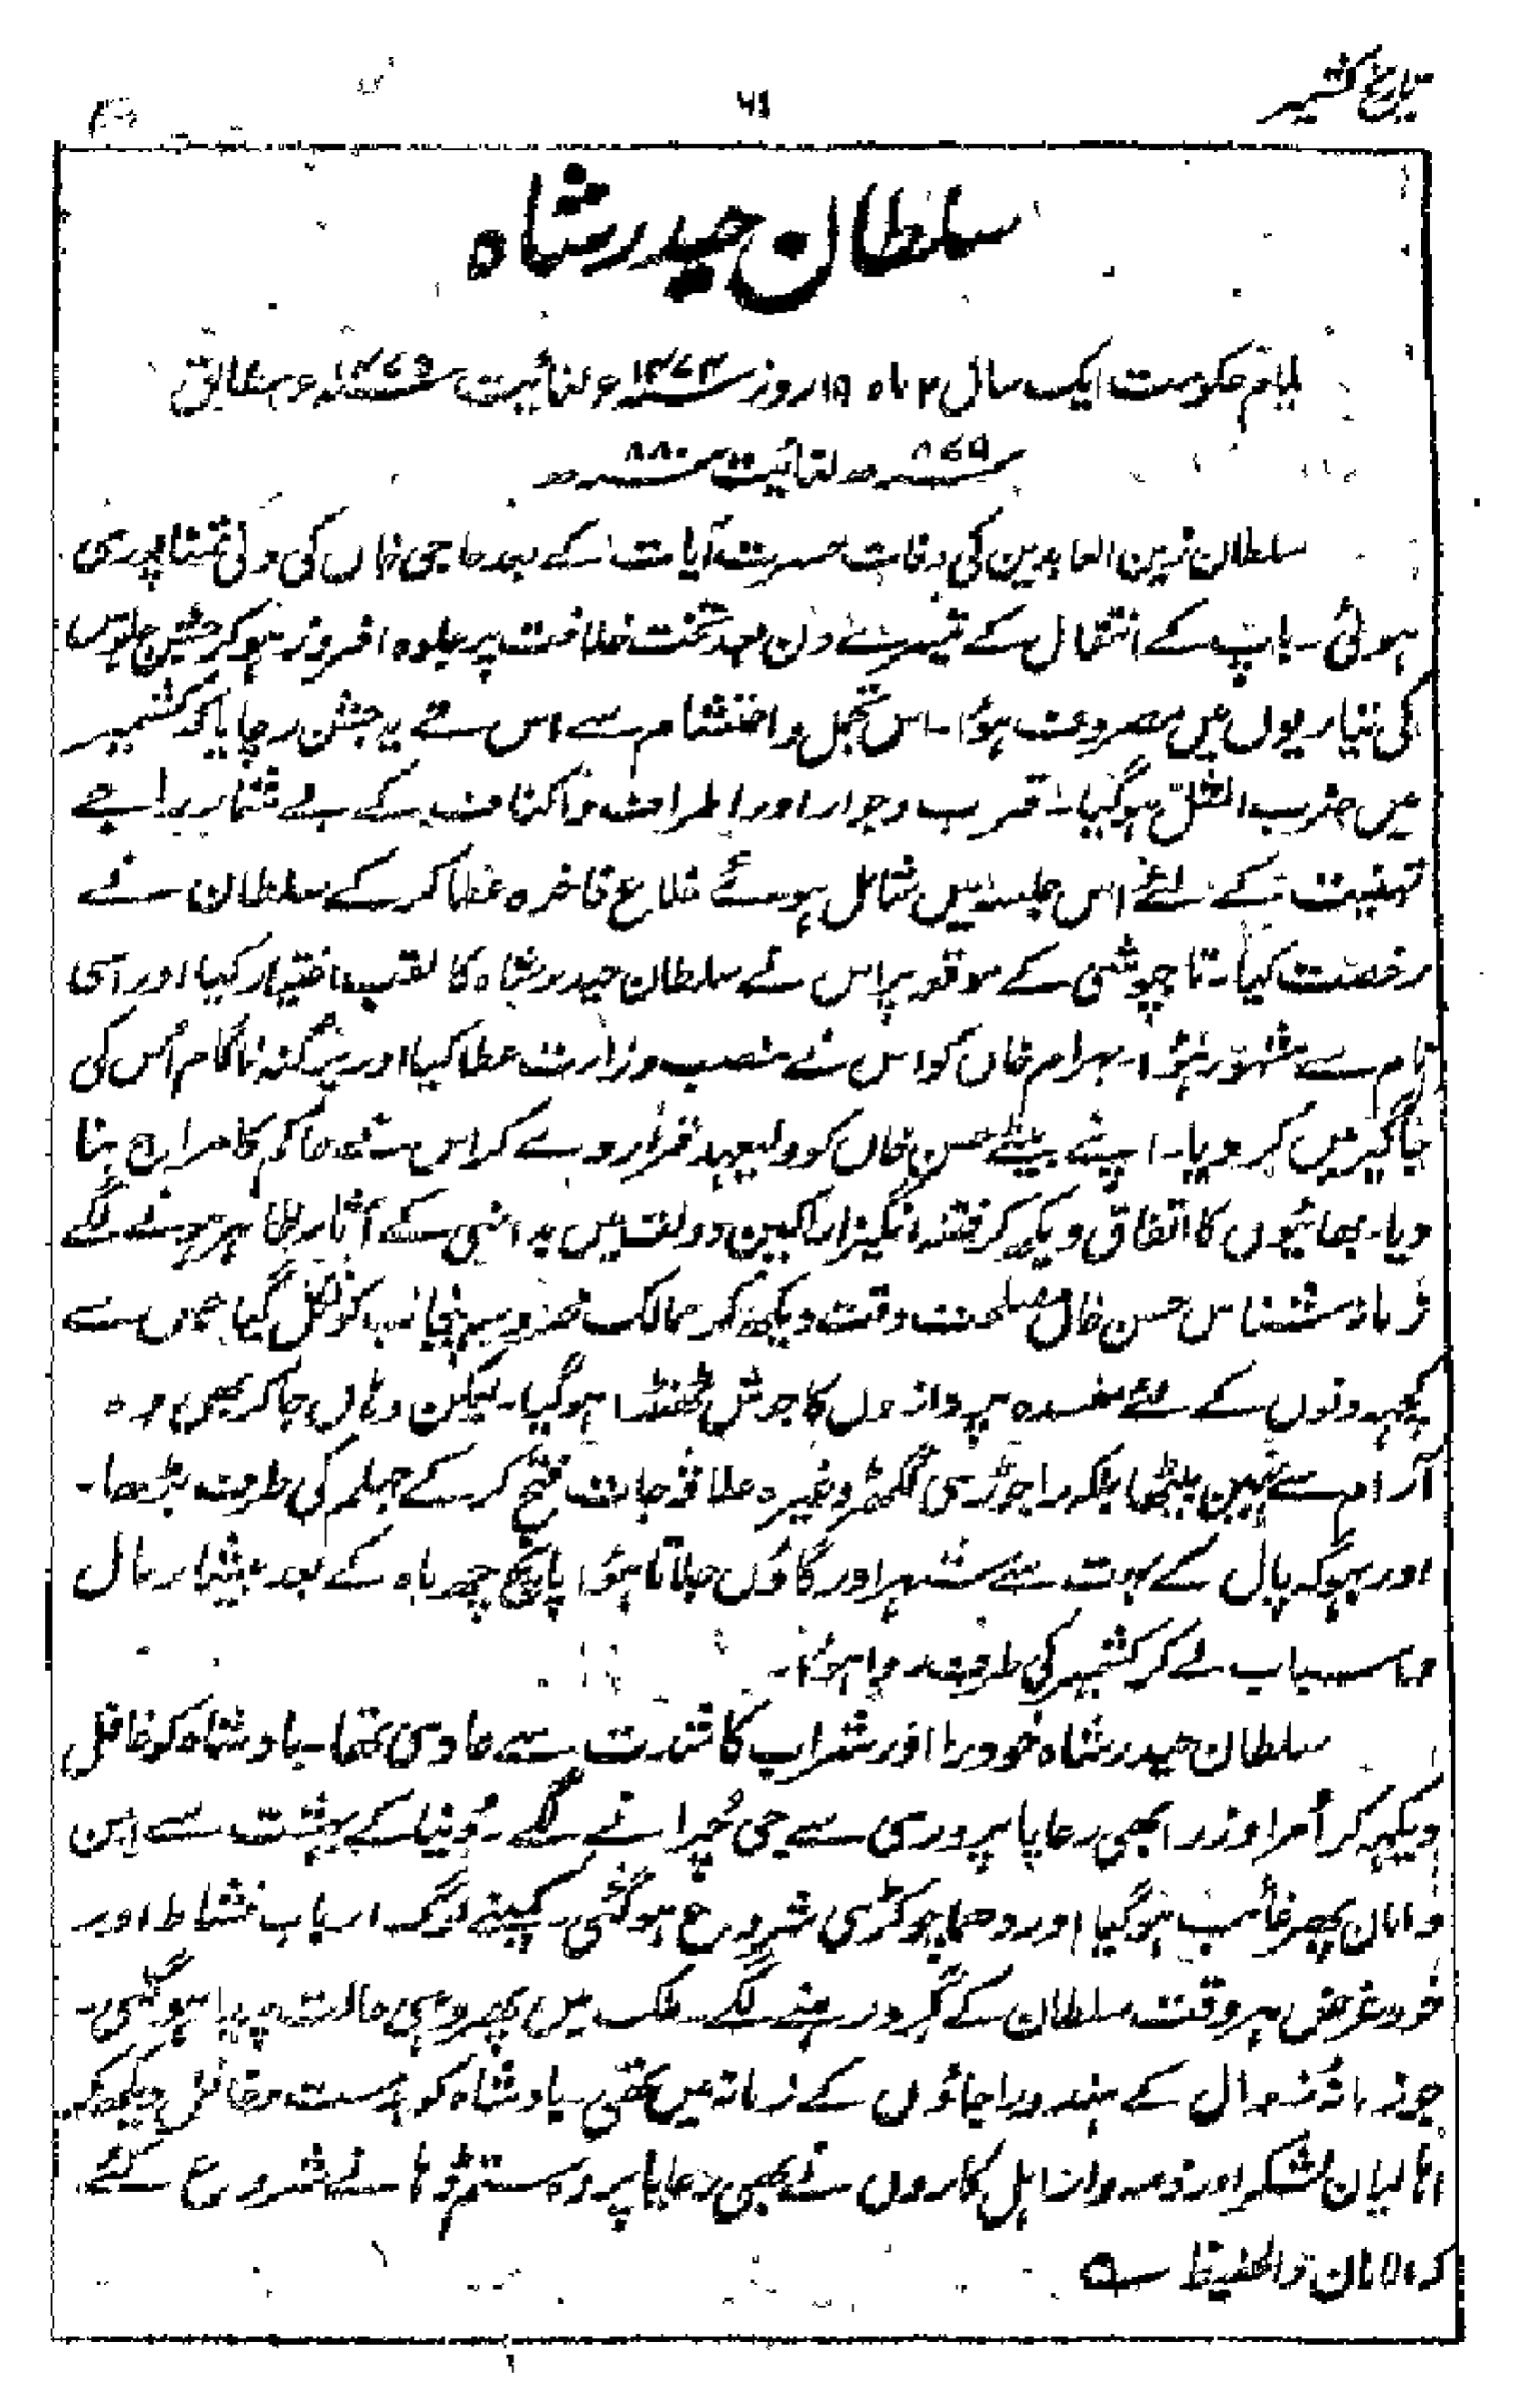 تاریخ کشمیر
۴۱
سلطان حیدر شاہ
ایام حکومت ایک سال ۲ ماہ ۱۸ روز سنہ ۱۴۷۴ء لغائیت سنہ ۱۴۷۵ء مطابق
سنہ ۸۷۹ھ لغائیت سنہ ۸۸۰ھ
سلطان زین العابدین کی وفات حسرت آیات کے بعد حاجی خاں کی دلی تمنا پوری
ہوئی۔ باپ کے انتقال کے تیسرے دن بعد تخت خلافت پر جلوہ افروز ہوکر جشن جلوس
کی تیاریوں میں مصروف ہوُا۔ اس تجمل و احتشام سے اس نے یہ جشن رچایا کہ کشمیر
میں ضرب المثل ہوگیا۔ قرب وجوار اور اطراف و اکناف کے بے شمار راجے
تہنیت کے لئے اس جلسہ میں شامل ہوئے خلاع فاخرہ عطا کرکے سلطان نے
رخصت کیا۔ تاجپوشی کے موقعہ پر اس نے سلطان حیدر شاہ کا لقب اختیار کیا اور اسی
نام سے مشہور ہوُا۔ بہرام خاں کو اس نے منصب وزارت عطا کیا اور پرگنہ ناگام اُس کی
جاگیر میں کر دیا۔ اپنے بیٹے حسن خاں کو ولیعہد قرار دے کر اس نے حاکم کامراج بنا
دیا۔ بھائیوں کا اتفاق دیکھ کر فتنہ انگیز اراکین دولت میں بد امنی کے آثار ظاہر ہونے لگے
حسن خاں مصلحت وقت دیکھ کر ممالک پنجاب کو نکل گیا جس سے
کچھ دنوں کے لئے مفسدہ پردازوں کا جوش ٹھنڈا ہوگیا۔ لیکن وہاں جاکر بھی وہ
آرام سے نہیں بیٹھا بلکہ راجوڑی گکھڑ وغیرہ علاقہ جات فتح کرکے جہلم کی طرف بڑھا۔
اور بھوگہ پال کے بہت سے شہر اور گاؤں جلاتا ہوُا پانچ چھ ماہ کے بعد بیشمار مال
و اسباب لے کر کشمیر کی طرف ہوُا۔
سلطان حیدر شاہ خودرا اور شراب کا شدت سے عادی تھا۔ بادشاہ کو غافل
دیکھ کر اُمرا وزرا بھی رعایا پروری سے جی چُرانے لگے۔ دُنیا کے بہشت سے امن
و امان پھر غائب ہوگیا اور دھماچوکڑی شروع ہوگئی۔ کمینے لوگ ارباب نشاط اور
خود غرض ہر وقت سلطان کے گِرد رہنے لگے۔ ملک میں پھر وہی حالت پیدا ہوگئی۔
جو زمانۂ زوال کے ہندو راجاؤں کے زمانہ میں تھی۔ بادشاہ کو بدمست و غافل دیکھکر
اہالیان لشکر اور ذمہ وار اہل کاروں نے بھی رعایا پر وہ ستم ڈھانے شروع کئے
کہ الامان والحفیظ ؎